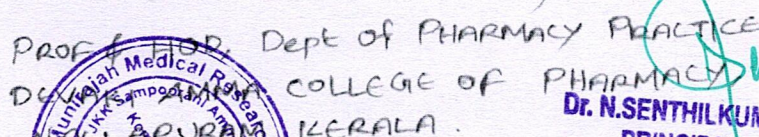 PROF & HOD, Dept of PHARMACY PRACTICE
DEVAKI AMMA COLLEGE OF PHARMACY,
KERALA.
Munirajah Medical Resear
JKK Sampoorani Am
Dr. N.SENTHILKUM